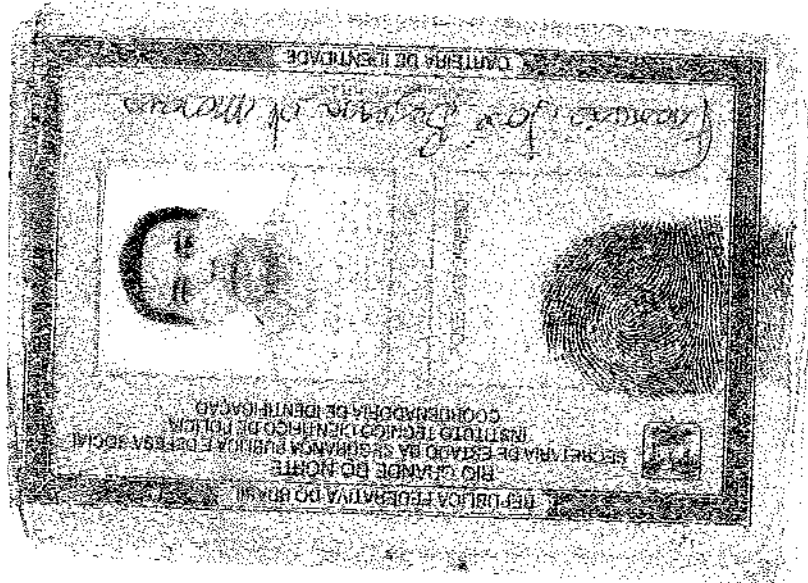 REPÚBLICA FEDERATIVA DO BRASIL
RIO GRANDE DO NORTE
SECRETARIA DE ESTADO DA SEGURANÇA PÚBLICA E DEFESA SOCIAL
INSTITUTO TÉCNICO CIENTÍFICO DE POLÍCIA
COORDENADORIA DE IDENTIFICAÇÃO
Francisco José de
CARTEIRA DE IDENTIDADE